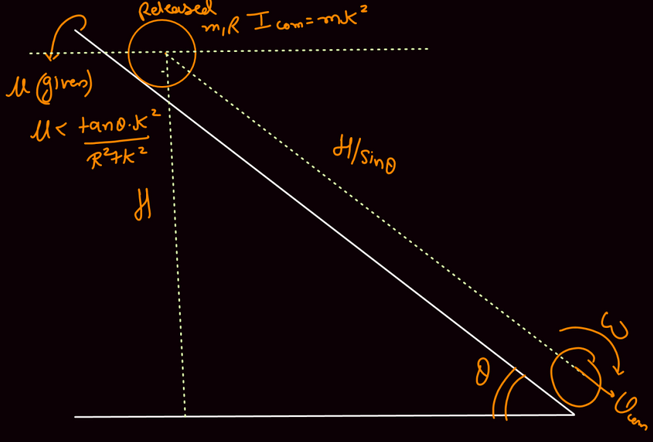 Released
m,R I com = mk²
μ (given)
μ < tanθ·K² / R²+K²
H/sinθ
H
θ
ω
υcom